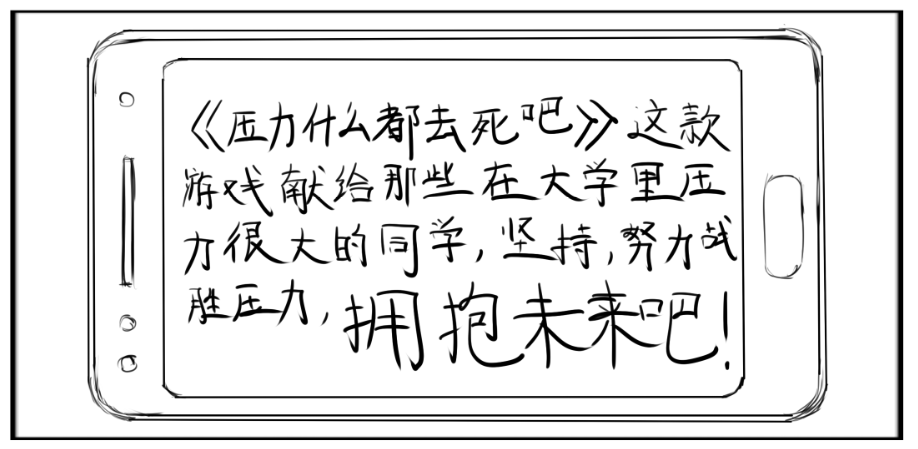 《压力什么都去死吧》这款
游戏献给那些在大学里压
力很大的同学,坚持,努力战
胜压力,拥抱未来吧!